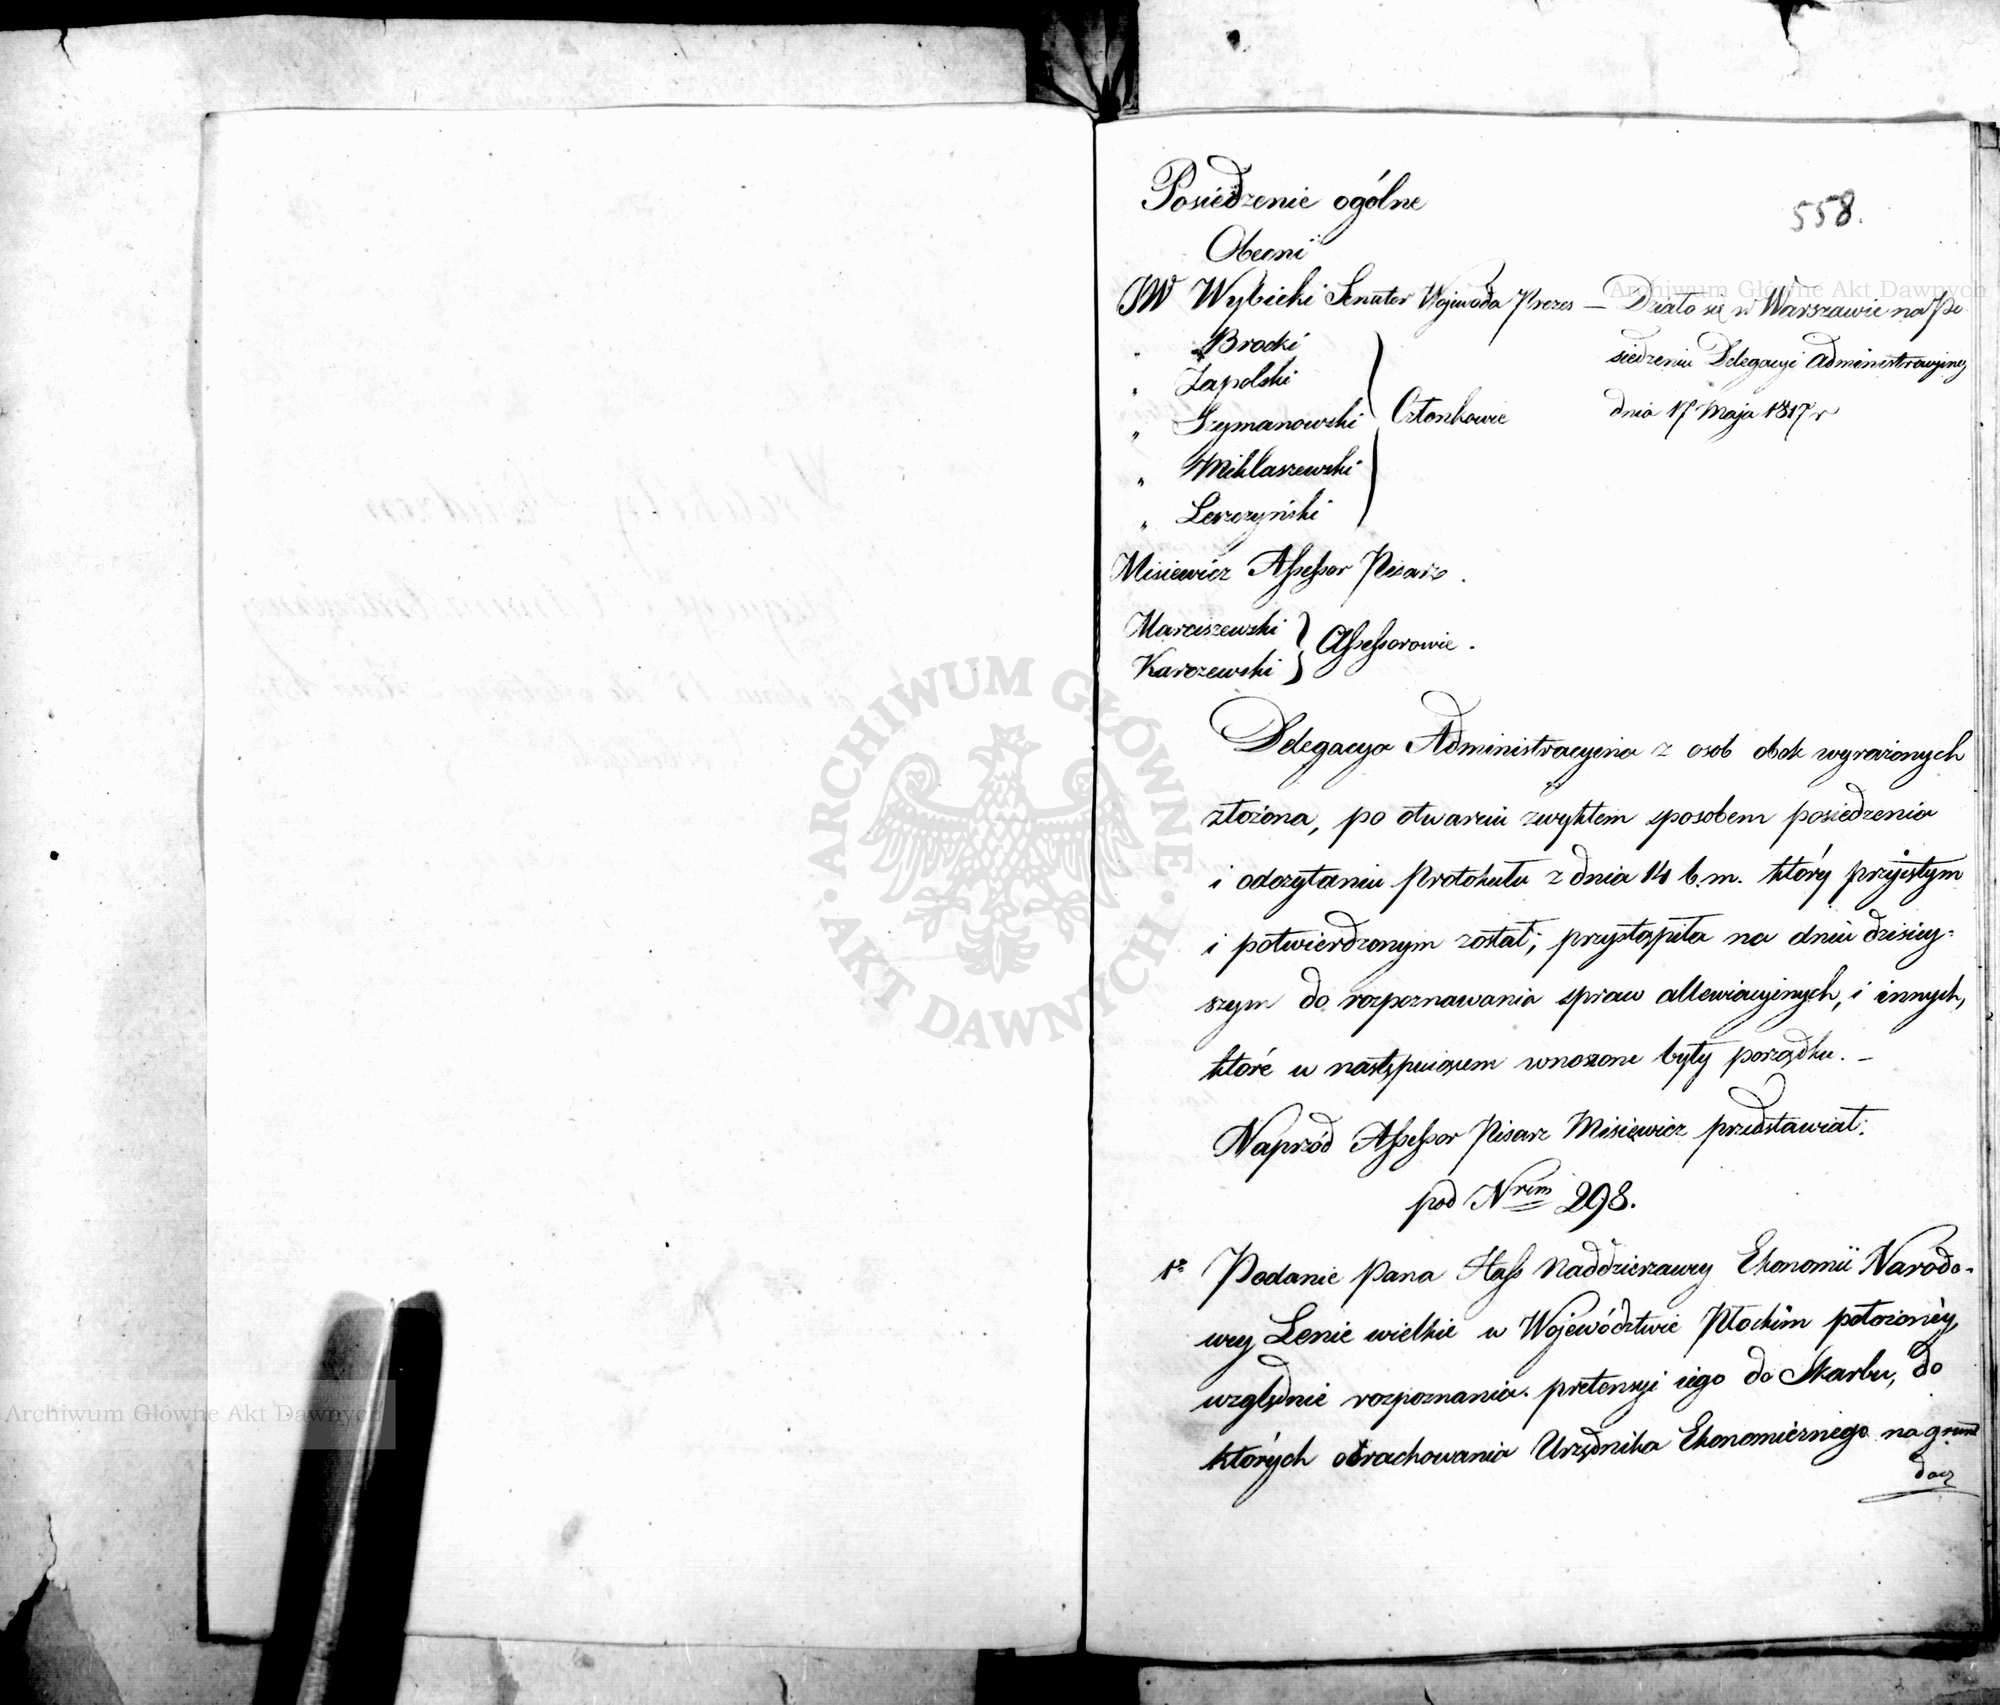 Posiedzenie ogólne
558.
Obecni
JW Wybicki Senator Wojewoda Prezes —
" Brocki
" Zapolski
" Szymanowski
" Miklaszewski
" Leszczyński
Członkowie
Działo się w Warszawie na Po
siedzeniu Delegacyi Administracyiney
dnia 17 Maja 1817 r
Misiewicz Assessor Pisarz.
Marciszewski
Karczewski
Assessorowie.
Delegacya Administracyina z osob obok wyrażonych
złożona, po otwarciu zwykłem sposobem posiedzenia
i odczytaniu Protokułu z dnia 14 b. m. który przyiętym
i potwierdzonym został; przystąpiła na dniu dzisiey-
szym do rozpoznawania spraw allewiacyinych, i innych,
które w następuiącem wnoszone były porządku. —
Napród Assessor Pisarz Misiewicz przedstawiał:
pod Nrem 298.
1o Podanie Pana Hass Naddzierzawcy Ekonomii Narodo-
wey Lenie wielkie w Województwie Płockim położoney,
względnie rozpoznania pretensyi iego do Skarbu, do
których obrachowania Urzędnika Ekonomicznego na grunt
Archiwum Główne Akt Dawnych
Archiwum Główne Akt Dawnych
· ARCHIWUM GŁÓWNE · AKT DAWNYCH